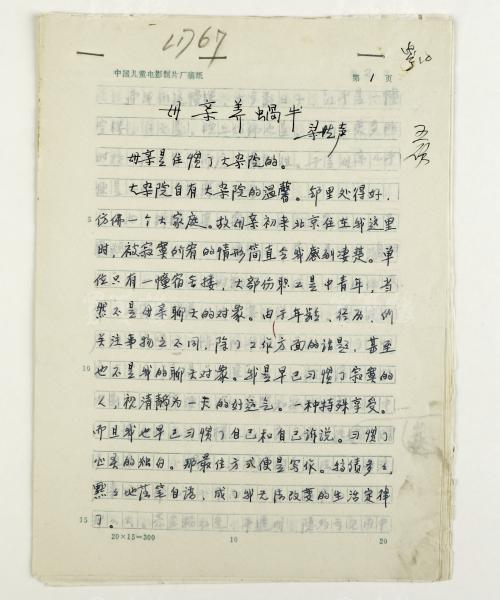 4767
中国儿童电影制片厂稿纸
第1页
母亲养蜗牛
梁晓声
母亲是住惯了大杂院的。
大杂院自有大杂院的温馨。邻里处得好，
5
仿佛一个大家庭。故母亲初来北京住在我这里
时，被寂寞所窘的情形简直令我感到凄楚。单
位只有一幢宿舍楼，大部份职工是中青年，当
然不是母亲聊天的对象。由于年龄、经历、所
关注事物之不同，除了工作方面的话题，甚至
10
也不是我的聊天对象。我是早已习惯了寂寞的
人，视清静为一天的好运气，一种特殊享受。
而且我也早已习惯了自己和自己诉说，习惯了
心灵的独白。那最佳方式便是写作。稿债多多，
默默地落笔自语，成了我无法改变的生活定律
15
了。
20×15=300
10
20